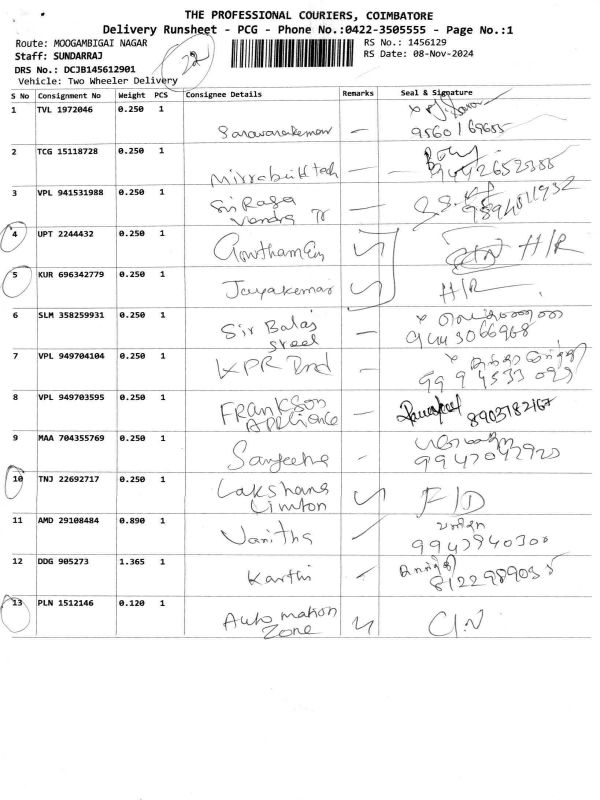 THE PROFESSIONAL COURIERS, COIMBATORE
Delivery Runsheet - PCG - Phone No.:0422-3505555 - Page No.:1
Route: MOOGAMBIGAI NAGAR
RS No.: 1456129
Staff: SUNDARRAJ
22
RS Date: 08-Nov-2024
DRS No.: DCJB145612901
Vehicle: Two Wheeler Delivery
S No Consignment No Weight PCS Consignee Details Remarks Seal & Signature
1 TVL 1972046 0.250 1 Saravanakumar —
2 TCG 15118728 0.250 1 —
9442652355
3 VPL 941531988 0.250 1 Sri Raga —
9894811932
4 UPT 2244432 0.250 1 H/R
5 KUR 696342779 0.250 1 Jayakemar H/R
6 SLM 358259931 0.250 1 Sir Balaj —
Steel 9443066968
7 VPL 949704104 0.250 1 KPR Ind —
8 VPL 949703595 0.250 1 FRANKSON —
APPLIANCE 8903182167
9 MAA 704355769 0.250 1 Sanjeetha —
10 TNJ 22692717 0.250 1 Lakshana F/D
Limton
11 AMD 29108484 0.890 1 Vanitha
9943940300
12 DDG 905273 1.365 1 Karthi
8122989035
13 PLN 1512146 0.120 1 Automation C/N
Zone